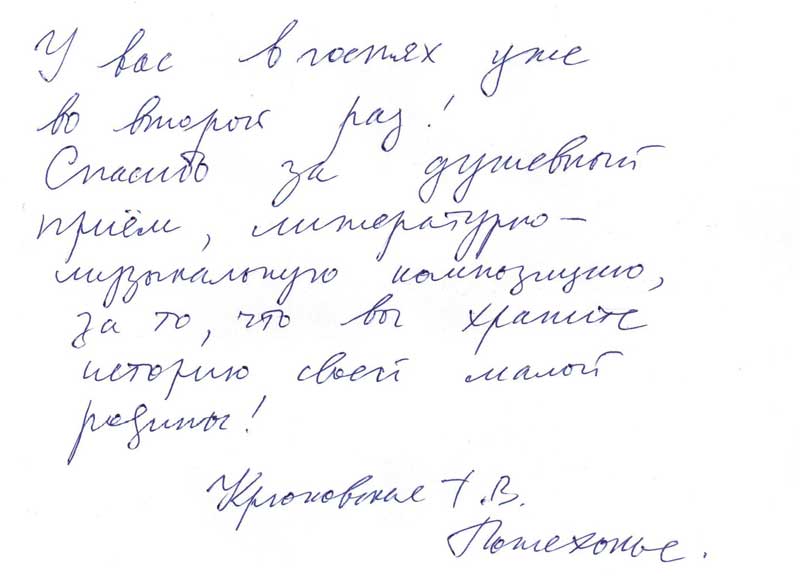 У вас в гостях уже
во второй раз!
Спасибо за душевный
приём, литературно-
музыкальную композицию,
за то, что вы храните
историю своей малой
родины!
Крюковская Т.В.
Пошехонье.